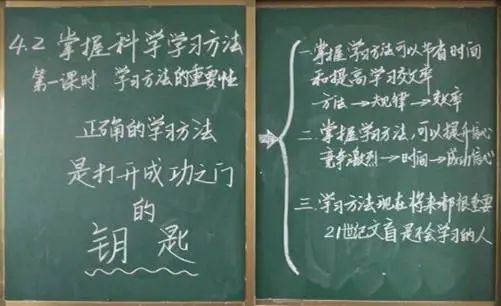 4.2 掌握科学学习方法
第一课时 学习方法的重要性
正确的学习方法
是打开成功之门
的
钥匙
一.掌握学习方法可以节省时间
和提高学习效率
方法→规律→效率
二.掌握学习方法,可以提升信心
竞争激烈→时间→成功信心
三.学习方法现在将来都很重要
21世纪文盲是不会学习的人